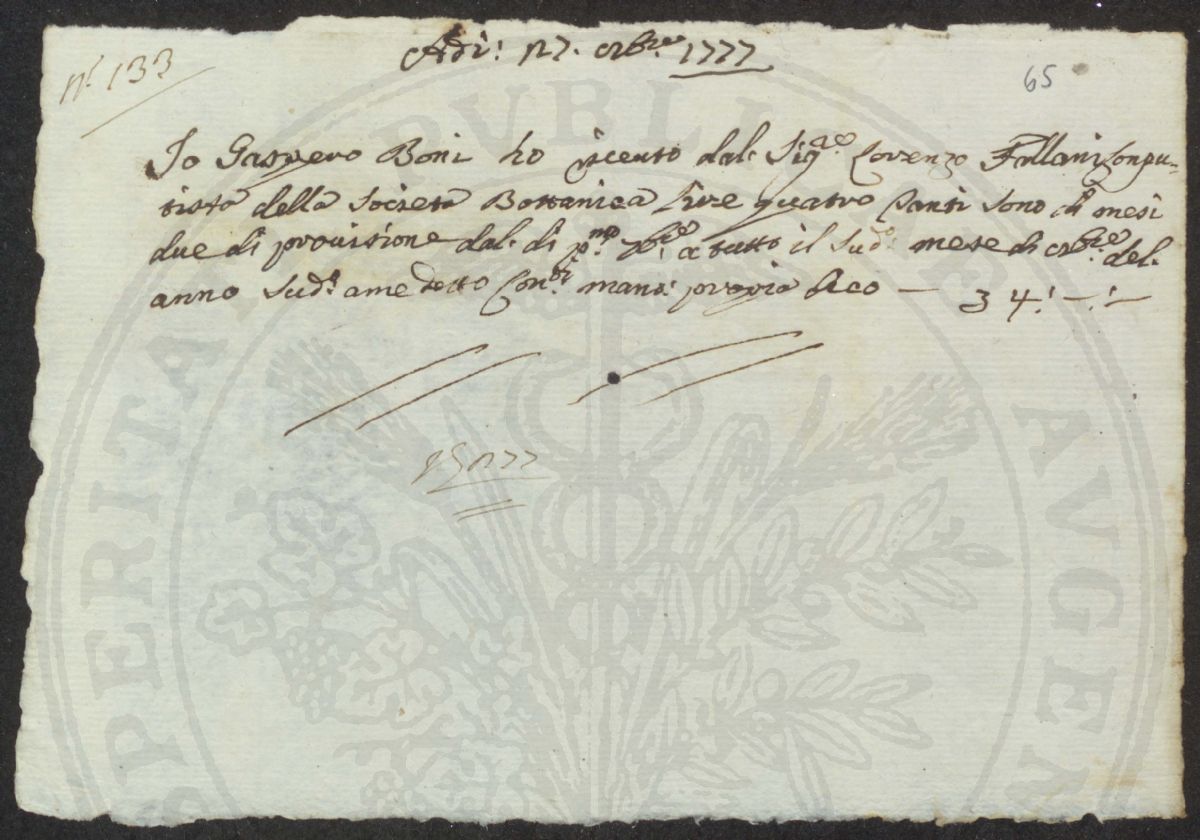 n.° 133
Adi: 27. 8bre 1777
65
Io Gaspero Boni ho riceuto dal. Sig.re Lorenzo Fallani Conpu=
tista della Società Bottanica Lire quatro Santi sono di mesi
due di provisione dal. di p.mo 7bre a tutto il Sud.° mese di 8bre del.
anno Sud.° a me detto Con.ti mano propria dico — 34.–.–
PVBLICAE
SPERITA
AVGEN